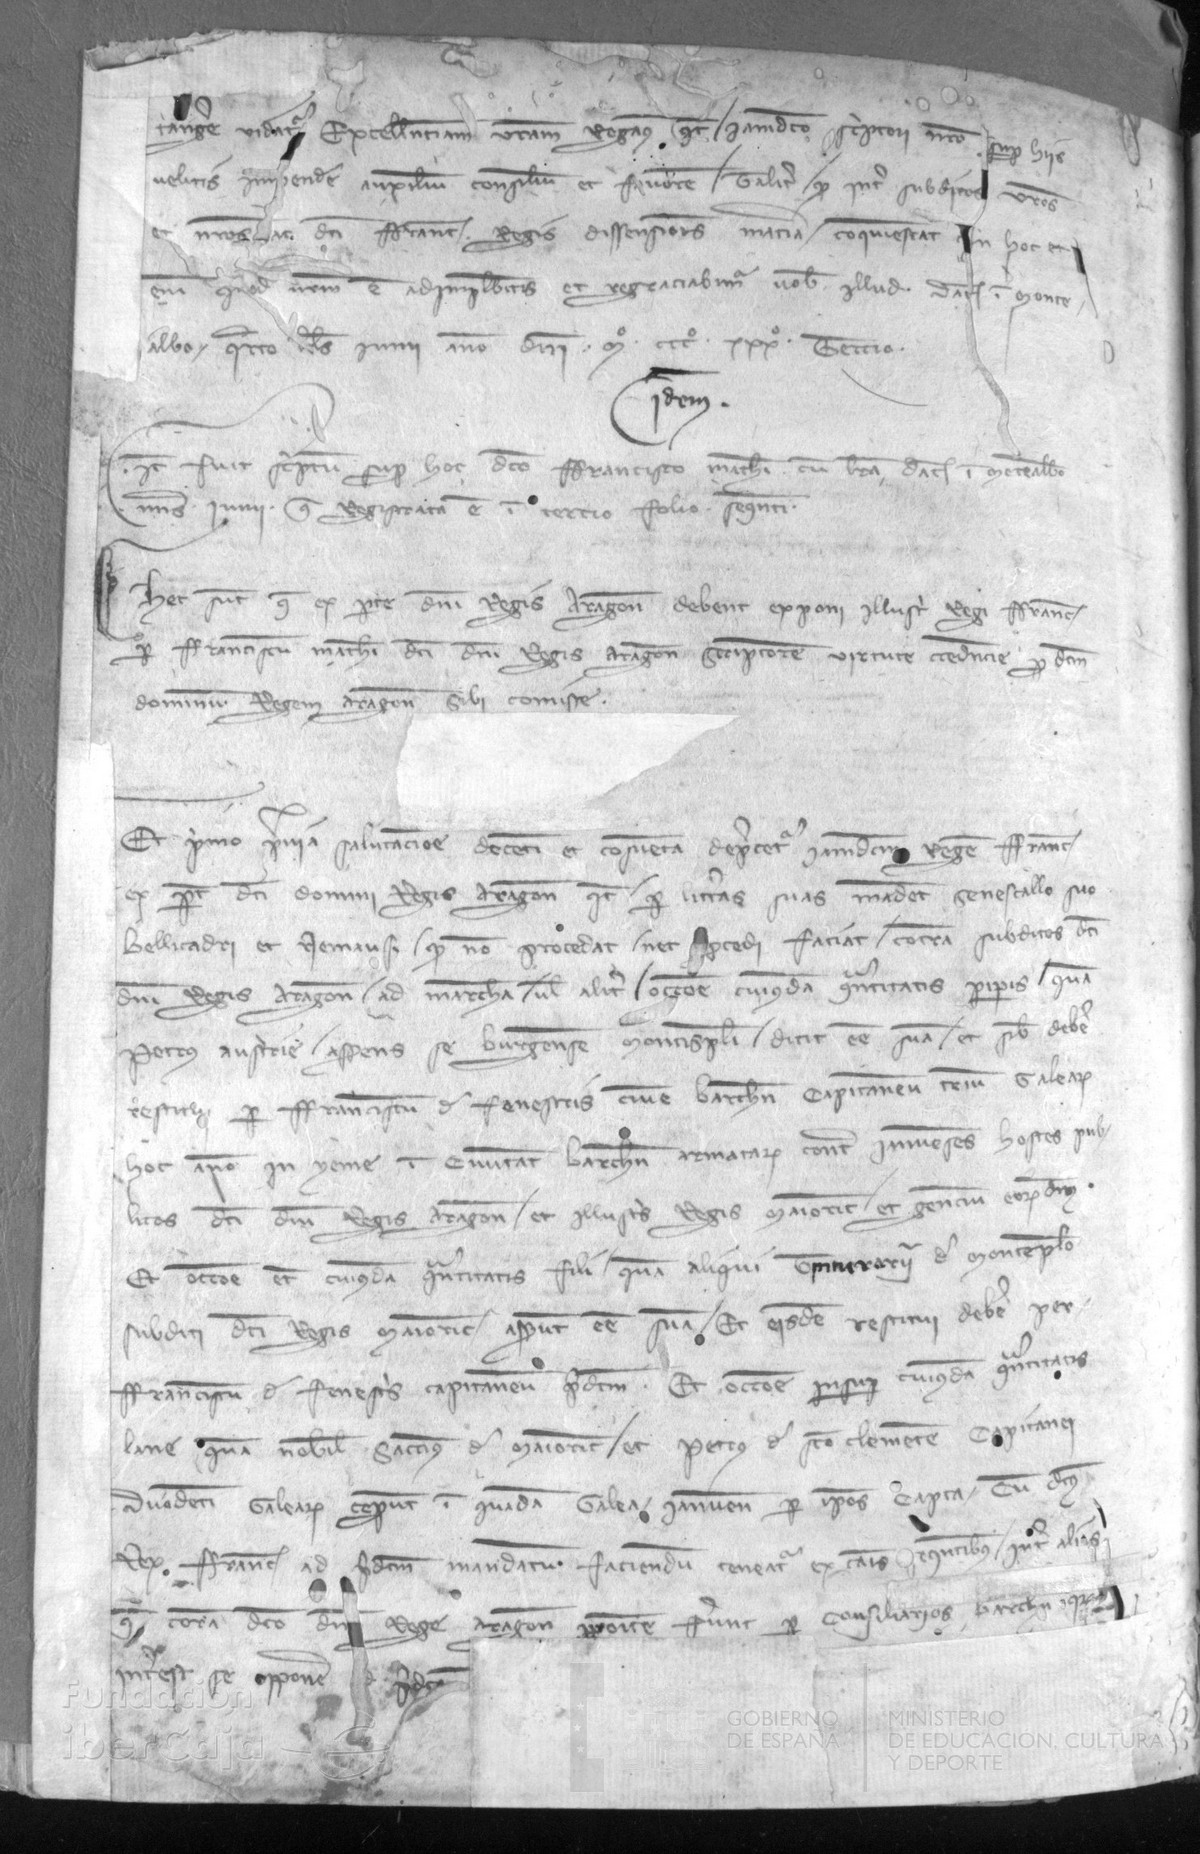 tangere videatur Excellenciam vestram Rogamus quatenus / iamdicto scriptori nostro super hiis
velitis impendere auxilium consilium et favorem / Taliter quod inter subditos vestros
et nostros ac dicti Franc. Regis dissensionis materia / conquiescat in hoc et
enim quod vestrum est adimplebitis et regraciabimur vobis illud. Dat. in Monte
albo quarto kls Iunii anno dni. Mº. CCCº. XXXº. Tercio.
Idem.
It fuit scriptum super hoc dco Ffrancisco Mathi cum lra dat in Montealbo
Iunii que Registrata e in tercio folio sequenti.
Hec sunt que ex parte dni Regis Aragon debent exponi illustri Regi Ffranc
per Ffranciscum Mathi dci dni Regis Aragon Scriptorem virtute credencie per dcm
dominum Regem Aragon sibi comisse.
Et primo previa salutacione decenti et consueta deprecetur iamdcm Regem Ffranc
ex parte dci domini Regis Aragon qt / per litteras suas mandet Senescallo suo
Bellicadri et Nemausi / quod non procedat / nec procedi faciat / contra subditos dci
dni Regis Aragon / ad marcham / vel aliter / occasione cuiusdam quantitatis piperis / quam
Petrus Austrie / asserens se burgensem Montispli / dicit esse suam / et sibi debere
restitui per Ffranciscum de Fenestris civem Barchn Capitaneum trium Galearum
hoc anno in yeme in Civitate Barchn armatarum contra Ianuenses hostes pub
licos dci dni Regis Aragon / et illustris Regis Maioric / et gencium eorumdem.
Et occasione etiam cuiusdam quantitatis fili / quam aliqui de Montepllo
subditi dci Regis Maioric / asserunt esse suam / Et eisdem restitui debere per
Ffranciscum de Fenestris capitaneum predictum. Et occasione cuiusdam quantitatis
lane quam nobilis Saccius de Maioric / et Petrus de sco Clemente Capitanei
duodecim Galearum ceperunt in quadam Galea Ianuen per ipsos capta / Cum dcus
Rex Ffranc ad predictum mandatum faciendum teneatur ex causis sequentibus / inter alias
que coram dco dno Rege Aragon proposite fuerunt per Consiliarios Barchn
interest se opponere
Fundación
iberCaja
GOBIERNO
DE ESPAÑA
MINISTERIO
DE EDUCACIÓN, CULTURA
Y DEPORTE